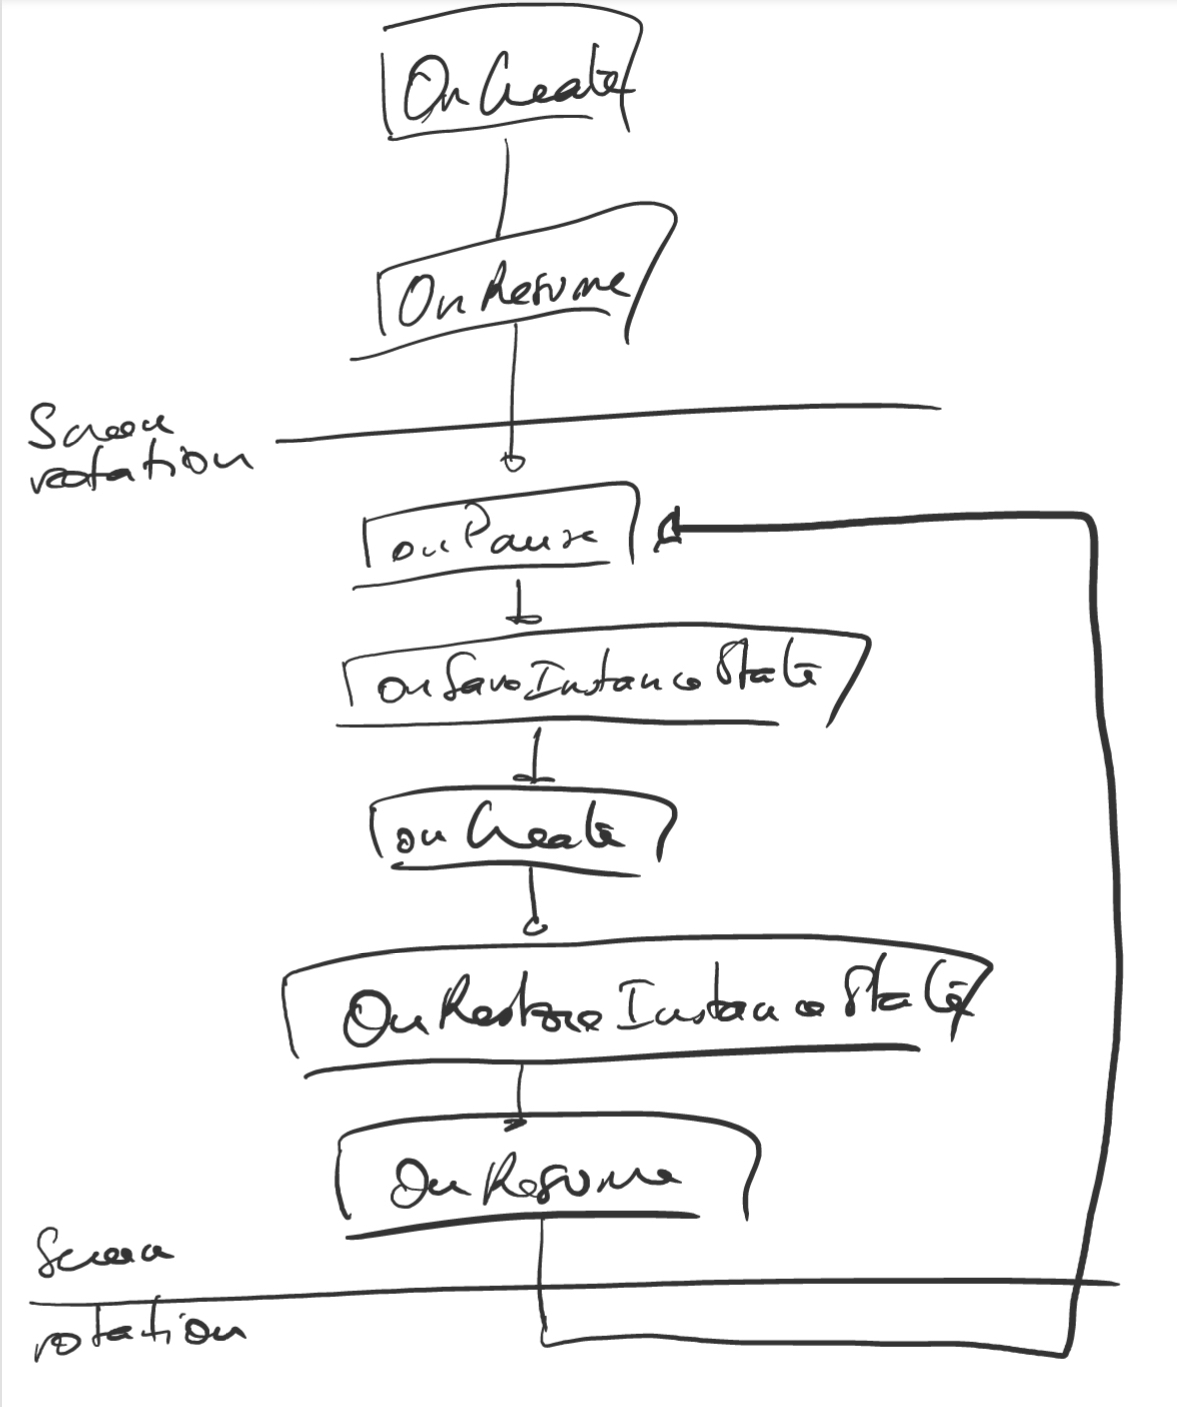 OnCreate
OnResume
Screen
rotation
onPause
onSaveInstanceState
onCreate
OnRestoreInstanceState
OnResume
Screen
rotation